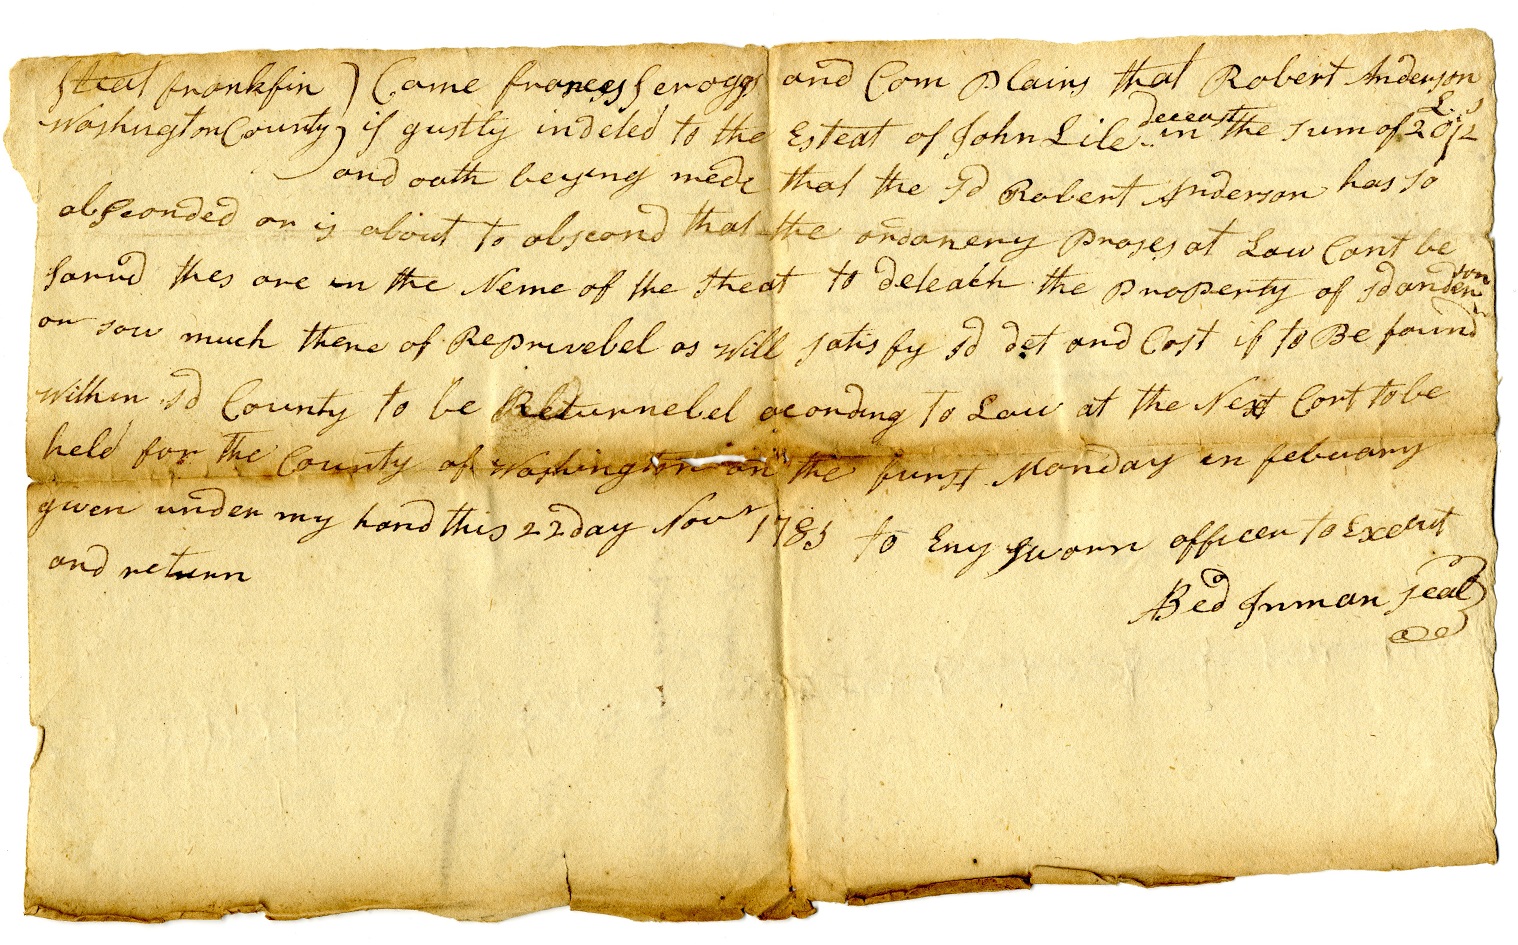 Steat franklin ) Came frances Scroggs and Com plains that Robert Anderson
Washington County ) is gustly indeted to the Esteat of John Lile deceast in the sum of £20 s12
and oath beying mede that the sd Robert Anderson has so
absconded or is about to abscond that the ordanery proses at Law Cant be
sarud thes are in the Neme of the Steat to deteach the property of sd anderson
or sow much there of Reprivebel as will satisfy sd det and Cost if to Be found
within sd County to be Returnebel acording to Law at the Next Cort to be
held for the County of Washington on the furst Monday in febuary
given under my hand this 22 day Novr 1785 to Eny sworn officer to Execut
and return
Abed Inman seal